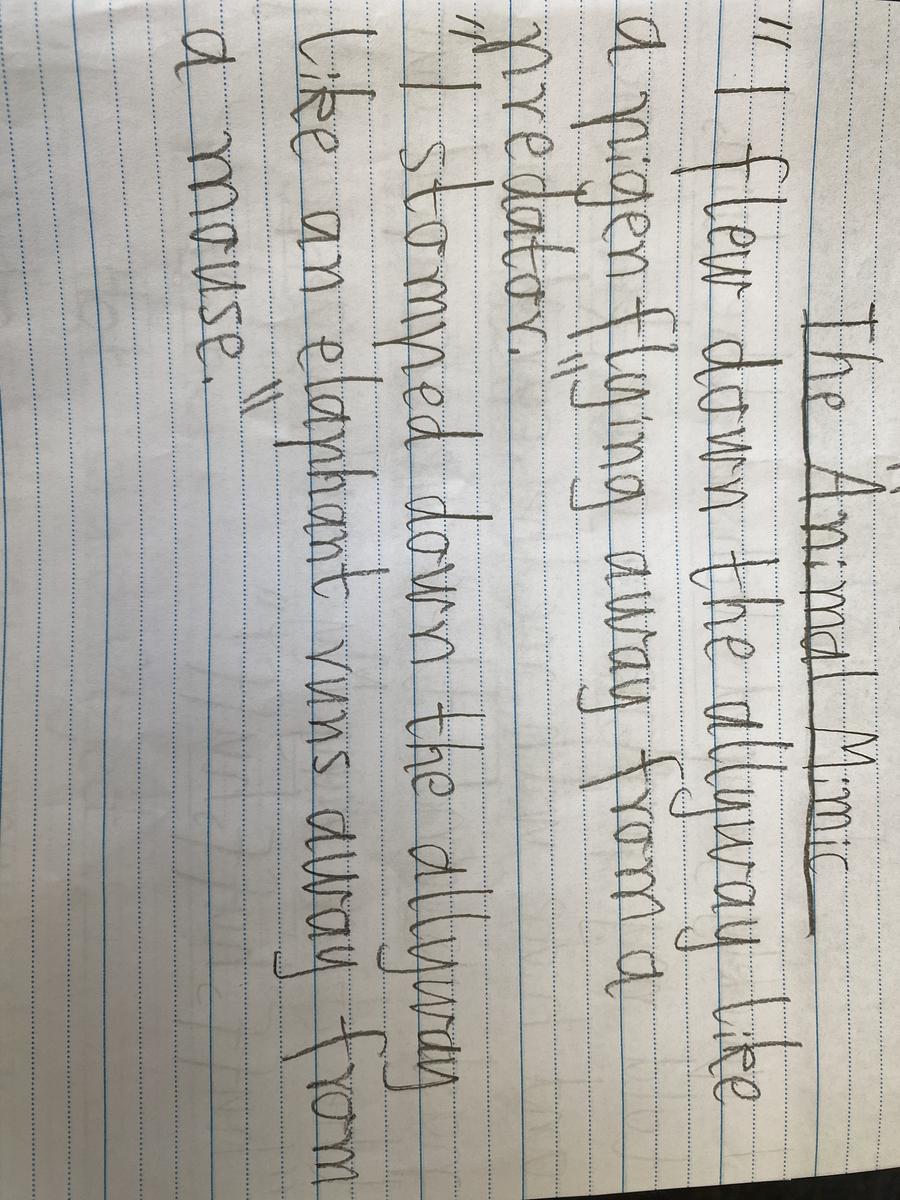 The Animal Mimic
"I flew down the allyway like
a pigen flying away from a
predator."
"I stomped down the allyway
like an elaphant runs away from
a mouse."